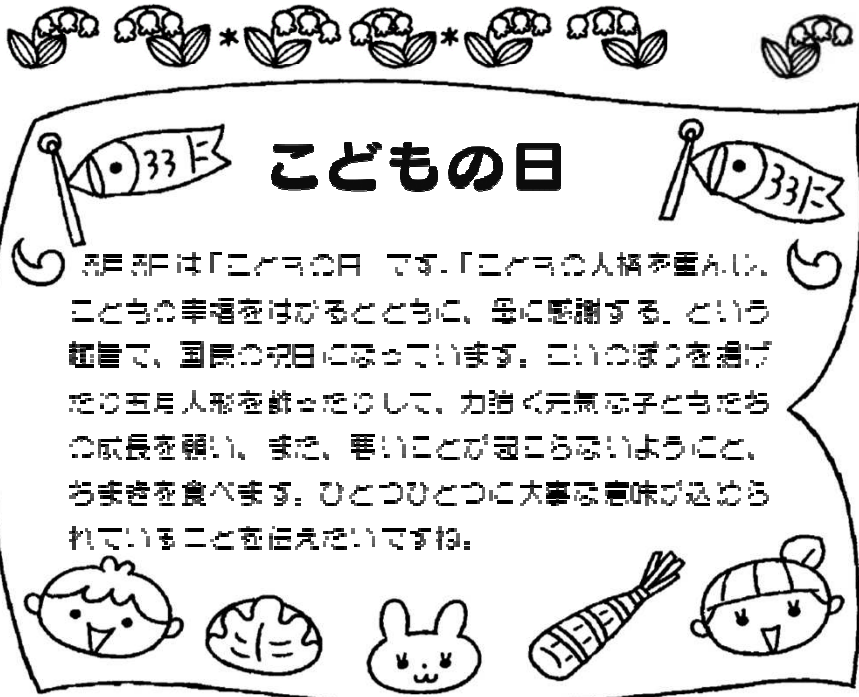 こどもの日
5月5日は「こどもの日」です。「こどもの人格を重んじ、
こどもの幸福をはかるとともに、母に感謝する」という
趣旨で、国民の祝日になっています。こいのぼりを揚げ
たり五月人形を飾ったりして、力強く元気な子どもたち
の成長を願い、また、悪いことが起こらないようにと、
ちまきを食べます。ひとつひとつに大事な意味が込めら
れていることを伝えたいですね。